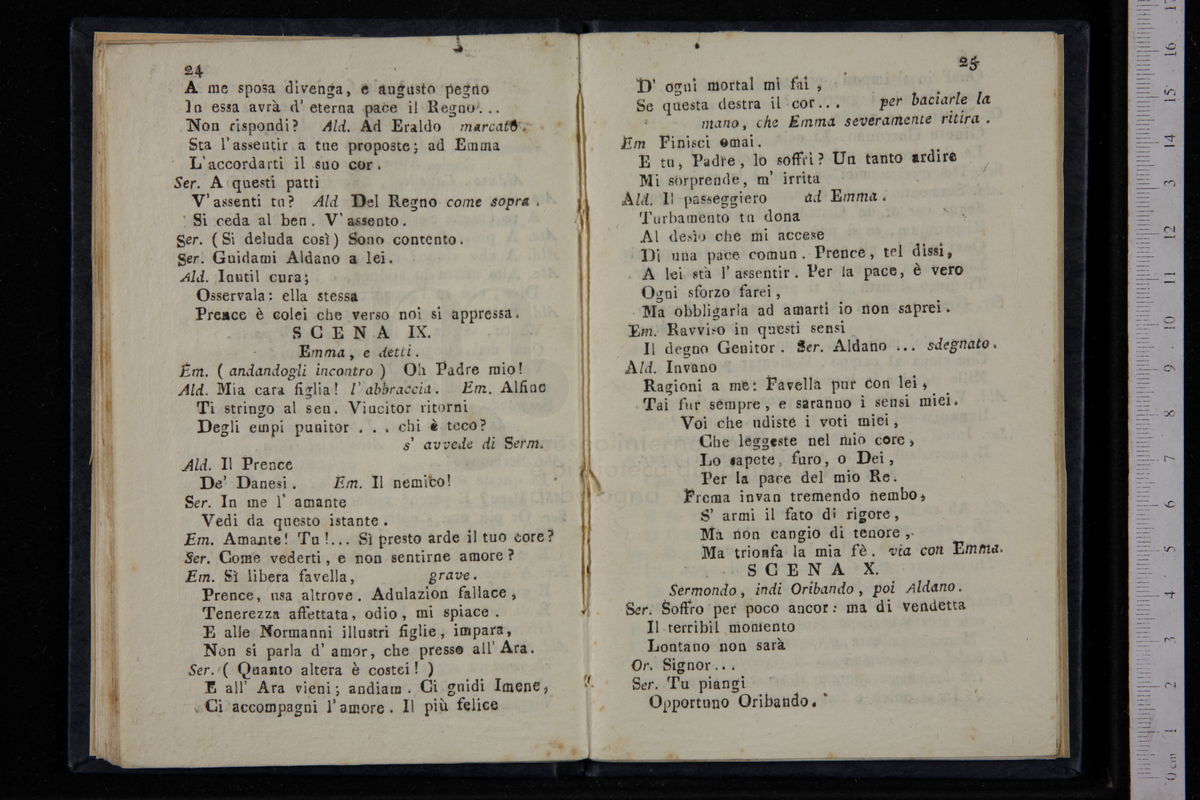 24
A me sposa divenga, e augusto pegno
In essa avrà d' eterna pace il Regno...
Non rispondi? Ald. Ad Eraldo marcato.
Sta l'assentir a tue proposte; ad Emma
L'accordarti il suo cor.
Ser. A questi patti
V'assenti tu? Ald Del Regno come sopra.
Si ceda al ben. V'assento.
Ser. (Si deluda così) Sono contento.
Ser. Guidami Aldano a lei.
Ald. Inutil cura;
Osservala: ella stessa
Prence è colei che verso noi si appressa.
SCENA IX.
Emma, e detti.
Em. (andandogli incontro) Oh Padre mio!
Ald. Mia cara figlia! l'abbraccia. Em. Alfine
Ti stringo al sen. Vincitor ritorni
Degli empi punitor . . . chi è teco?
s' avvede di Serm.
Ald. Il Prence
De' Danesi. Em. Il nemico!
Ser. In me l' amante
Vedi da questo istante.
Em. Amante! Tu!... Sì presto arde il tuo core?
Ser. Come vederti, e non sentirne amore?
Em. Sì libera favella, grave.
Prence, usa altrove. Adulazion fallace,
Tenerezza affettata, odio, mi spiace.
E alle Normanni illustri figlie, impara,
Non si parla d' amor, che presso all' Ara.
Ser. (Quanto altera è costei!)
E all' Ara vieni; andiam. Ci guidi Imene,
Ci accompagni l'amore. Il più felice
25
D' ogni mortal mi fai,
Se questa destra il cor... per baciarle la
mano, che Emma severamente ritira.
Em Finisci omai.
E tu, Padre, lo soffri? Un tanto ardire
Mi sorprende, m' irrita
Ald. Il passeggiero ad Emma.
Turbamento tu dona
Al desio che mi accese
Di una pace comun. Prence, tel dissi,
A lei stà l' assentir. Per la pace, è vero
Ogni sforzo farei,
Ma obbligarla ad amarti io non saprei.
Em. Ravviso in questi sensi
Il degno Genitor. Ser. Aldano ... sdegnato.
Ald. Invano
Ragioni a me: Favella pur con lei,
Tai fur sempre, e saranno i sensi miei.
Voi che udiste i voti miei,
Che leggeste nel mio core,
Lo sapete, furo, o Dei,
Per la pace del mio Re.
Frema invan tremendo nembo,
S' armi il fato di rigore,
Ma non cangio di tenore,
Ma trionfa la mia fè. via con Emma.
SCENA X.
Sermondo, indi Oribando, poi Aldano.
Ser. Soffro per poco ancor: ma di vendetta
Il terribil momento
Lontano non sarà
Or. Signor...
Ser. Tu piangi
Opportuno Oribando.